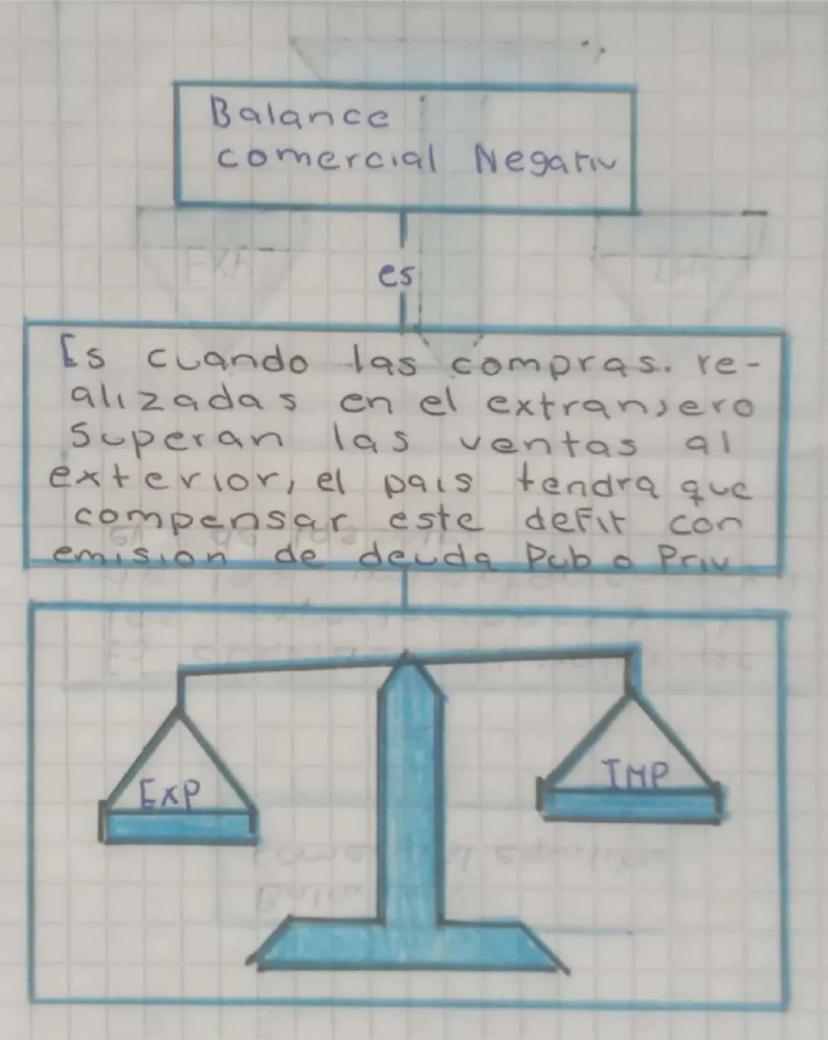 Balance
comercial Negativ
es
Es cuando las compras. re-
alizadas en el extranjero
superan las ventas al
exterior, el pais tendra que
compensar este defit con
emision de deuda Pub o Priv
EXP
IMP